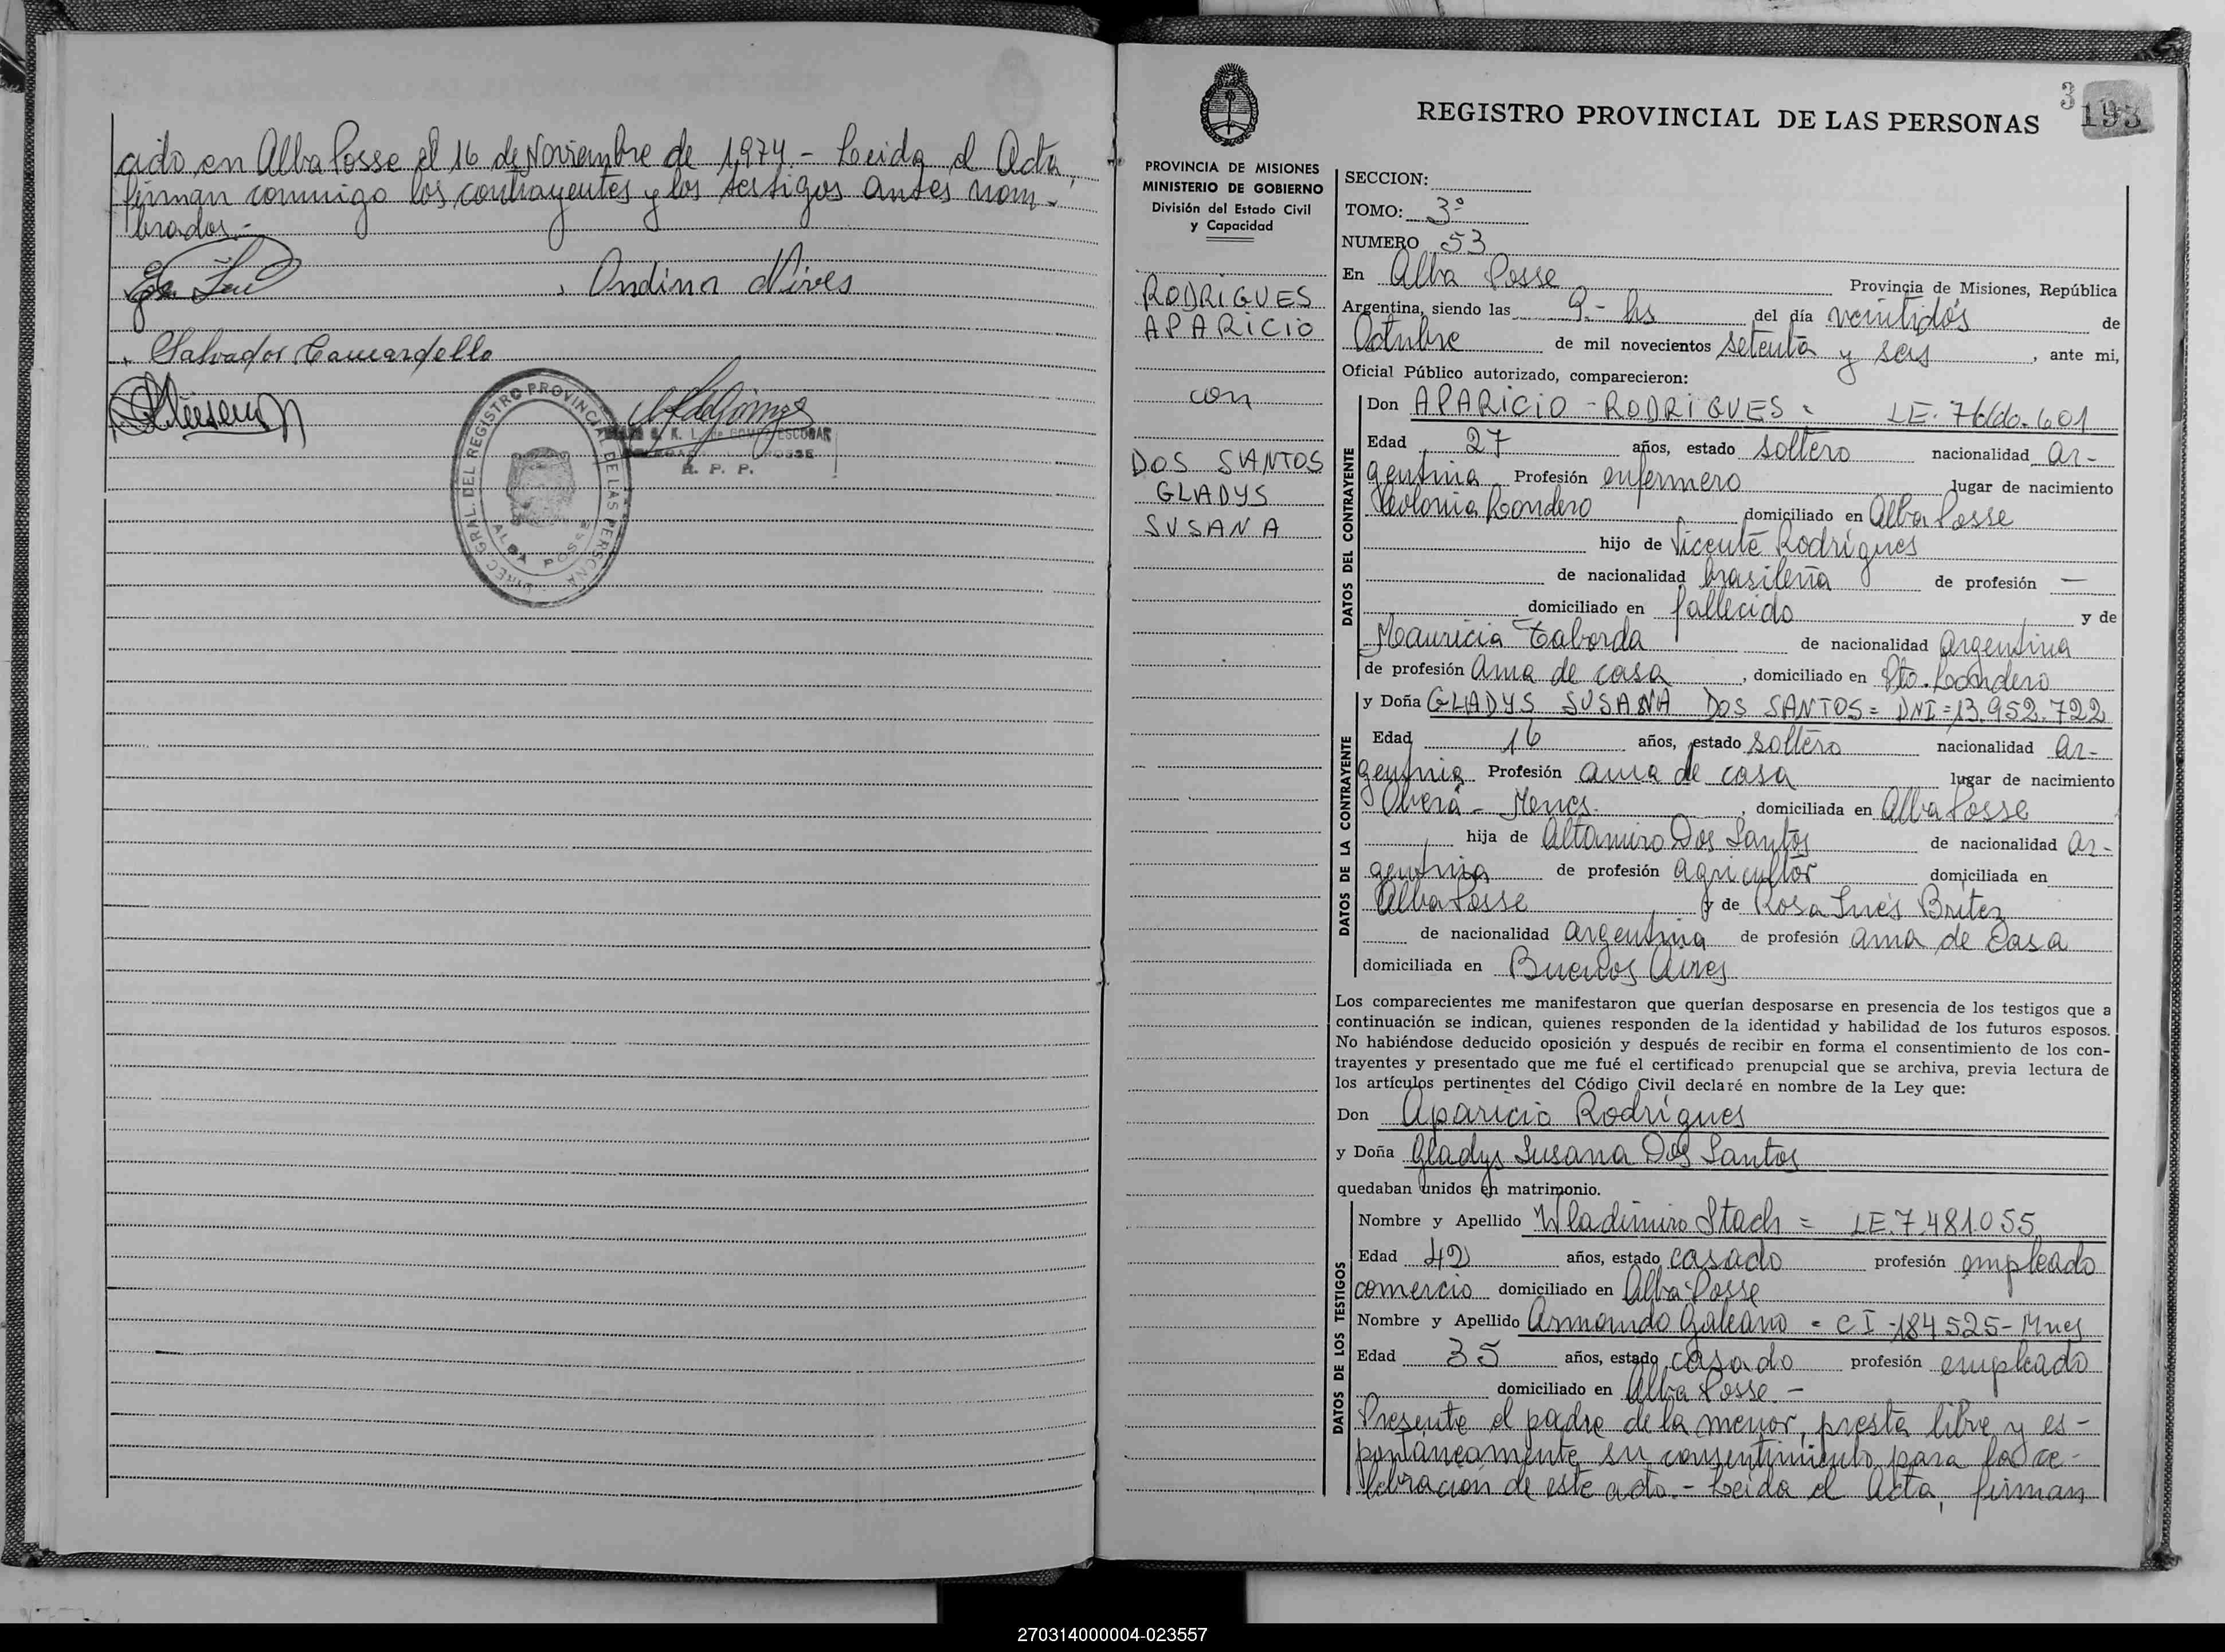 ado en Alba Posse el 16 de Noviembre de 1,974.- Leida el Acta,
firman conmigo los contrayentes y los testigos antes nom-
brados.-
, Ondina Nives
, Salvador Camardello
DIREC. GRAL. DEL REGISTRO PROVINCIAL DE LAS PERSONAS
ALBA POSSE
R. P. P.
REGISTRO PROVINCIAL DE LAS PERSONAS
3
193
PROVINCIA DE MISIONES
MINISTERIO DE GOBIERNO
División del Estado Civil
y Capacidad
RODRIGUES
APARICIO
con
DOS SANTOS
GLADYS
SUSANA
SECCION:
TOMO: 3º
NUMERO 53
En Alba Posse Provincia de Misiones, República
Argentina, siendo las 9.- hs del día veintidós de
Octubre de mil novecientos setenta y seis, ante mi,
Oficial Público autorizado, comparecieron:
DATOS DEL CONTRAYENTE
Don APARICIO - RODRIGUES = LE. 601
Edad 27 años, estado soltero nacionalidad ar-
gentina Profesión enfermero lugar de nacimiento
Colonia Londero domiciliado en Alba Posse
hijo de Vicente Rodrigues
de nacionalidad brasileña de profesión —
domiciliado en fallecido y de
Mauricia Taborda de nacionalidad argentina
de profesión ama de casa, domiciliado en Pto. Londero
DATOS DE LA CONTRAYENTE
y Doña GLADYS SUSANA DOS SANTOS = DNI = 13.952.722
Edad 16 años, estado soltera nacionalidad ar-
gentina Profesión ama de casa lugar de nacimiento
Oberá - Mnes., domiciliada en Alba Posse
hija de Altamiro Dos Santos de nacionalidad ar-
gentina de profesión agricultor domiciliada en
Alba Posse y de Rosa Inés Britez
de nacionalidad argentina de profesión ama de casa
domiciliada en Buenos Aires
Los comparecientes me manifestaron que querían desposarse en presencia de los testigos que a
continuación se indican, quienes responden de la identidad y habilidad de los futuros esposos.
No habiéndose deducido oposición y después de recibir en forma el consentimiento de los con-
trayentes y presentado que me fué el certificado prenupcial que se archiva, previa lectura de
los artículos pertinentes del Código Civil declaré en nombre de la Ley que:
Don Aparicio Rodrígues
y Doña Gladys Susana Dos Santos
quedaban unidos en matrimonio.
DATOS DE LOS TESTIGOS
Nombre y Apellido Wladimiro Stach = LE. 7.481055
Edad 42 años, estado casado profesión empleado
comercio domiciliado en Alba Posse
Nombre y Apellido Armando Galeano = CI -184525- Mnes
Edad 35 años, estado casado profesión empleado
domiciliado en Alba Posse.-
Presente el padre de la menor, presta libre y es-
pontáneamente su consentimiento para la ce-
lebración de este acto.- Leida el Acta, firman
270314000004-023557